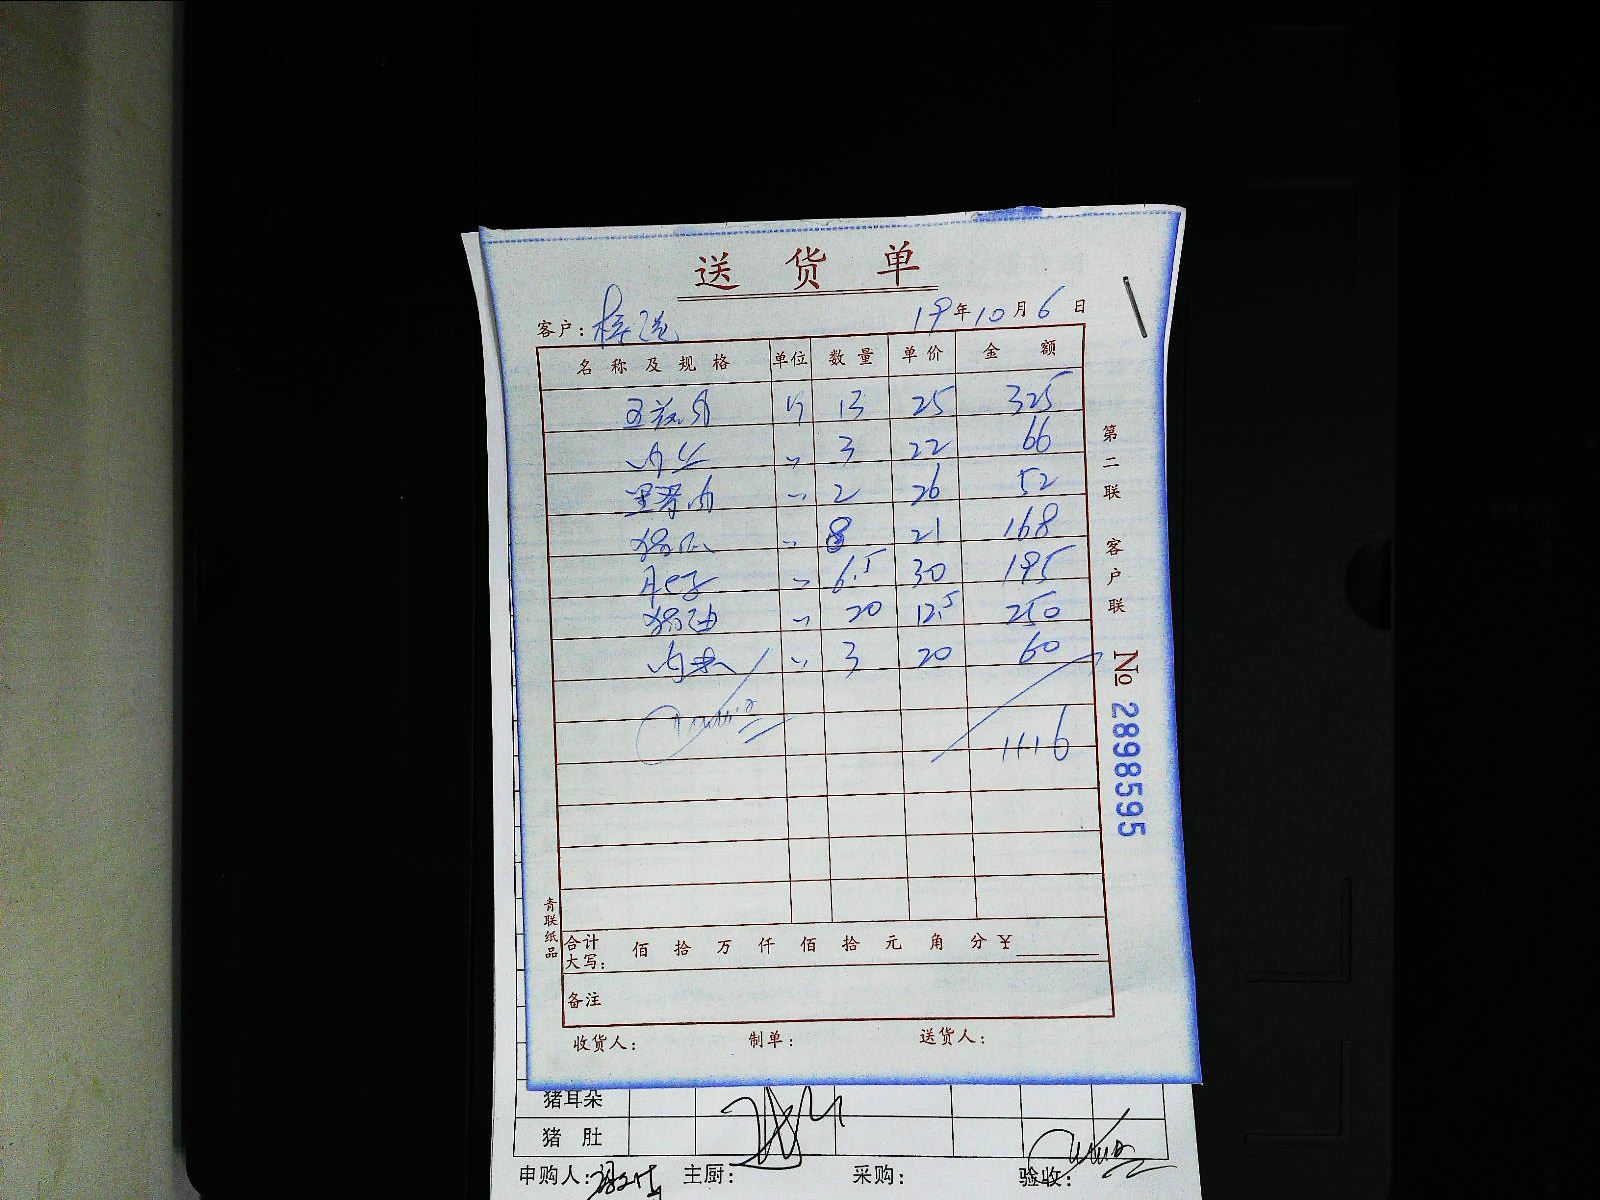 送货单
客户: 19年10月6日
名称及规格 单位 数量 单价 金额
五花肉 斤 13 25 325
肉丝 〃 3 22 66
里脊肉 〃 2 26 52
〃 8 21 168
肚子 〃 6.5 30 195
猪油 〃 20 12.5 250
肉末 〃 3 20 60
1116
第二联 客户联
№ 2898595
青联纸品
合计大写: 佰 拾 万 仟 佰 拾 元 角 分 ¥
备注
收货人: 制单: 送货人:
猪耳朵
猪肚
申购人: 主厨: 采购: 验收: